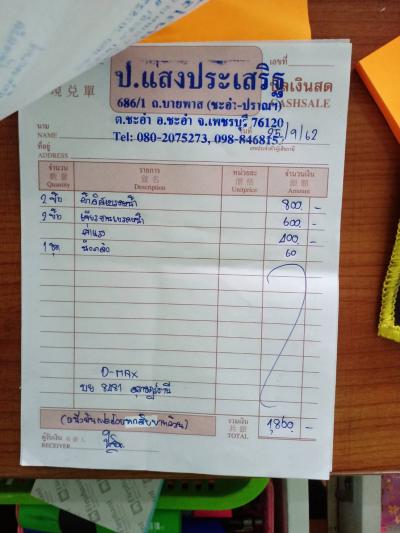 ป.แสงประเสริฐ
686/1 ถ.บายพาส (ชะอำ-ปราณฯ)
ต.ชะอำ อ.ชะอำ จ.เพชรบุรี 76120
Tel: 080-2075273, 098-846815
เลขที่
บิลเงินสด
CASHSALE
現兌單
นาม
NAME
วันที่ 25/9/62
ที่อยู่
ADDRESS
เลขประจำตัวผู้เสียภาษี
จำนวน รายการ หน่วยละ จำนวนเงิน
數量 貨名 價格 銀額
Quantity Description Unitprice Amount
2 ชิ้น 800.-
2 ชิ้น 600.-
ค่าแรง 400.-
1 ชุด 60
D-MAX
บย 8481
รวมเงิน
共銀
TOTAL
1,860.-
(หนึ่งพันแปดร้อยหกสิบบาทถ้วน)
ผู้รับเงิน 收銀人
RECEIVER